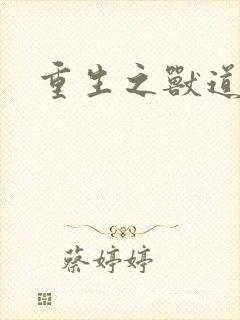 重生之獸道
蔡婷婷